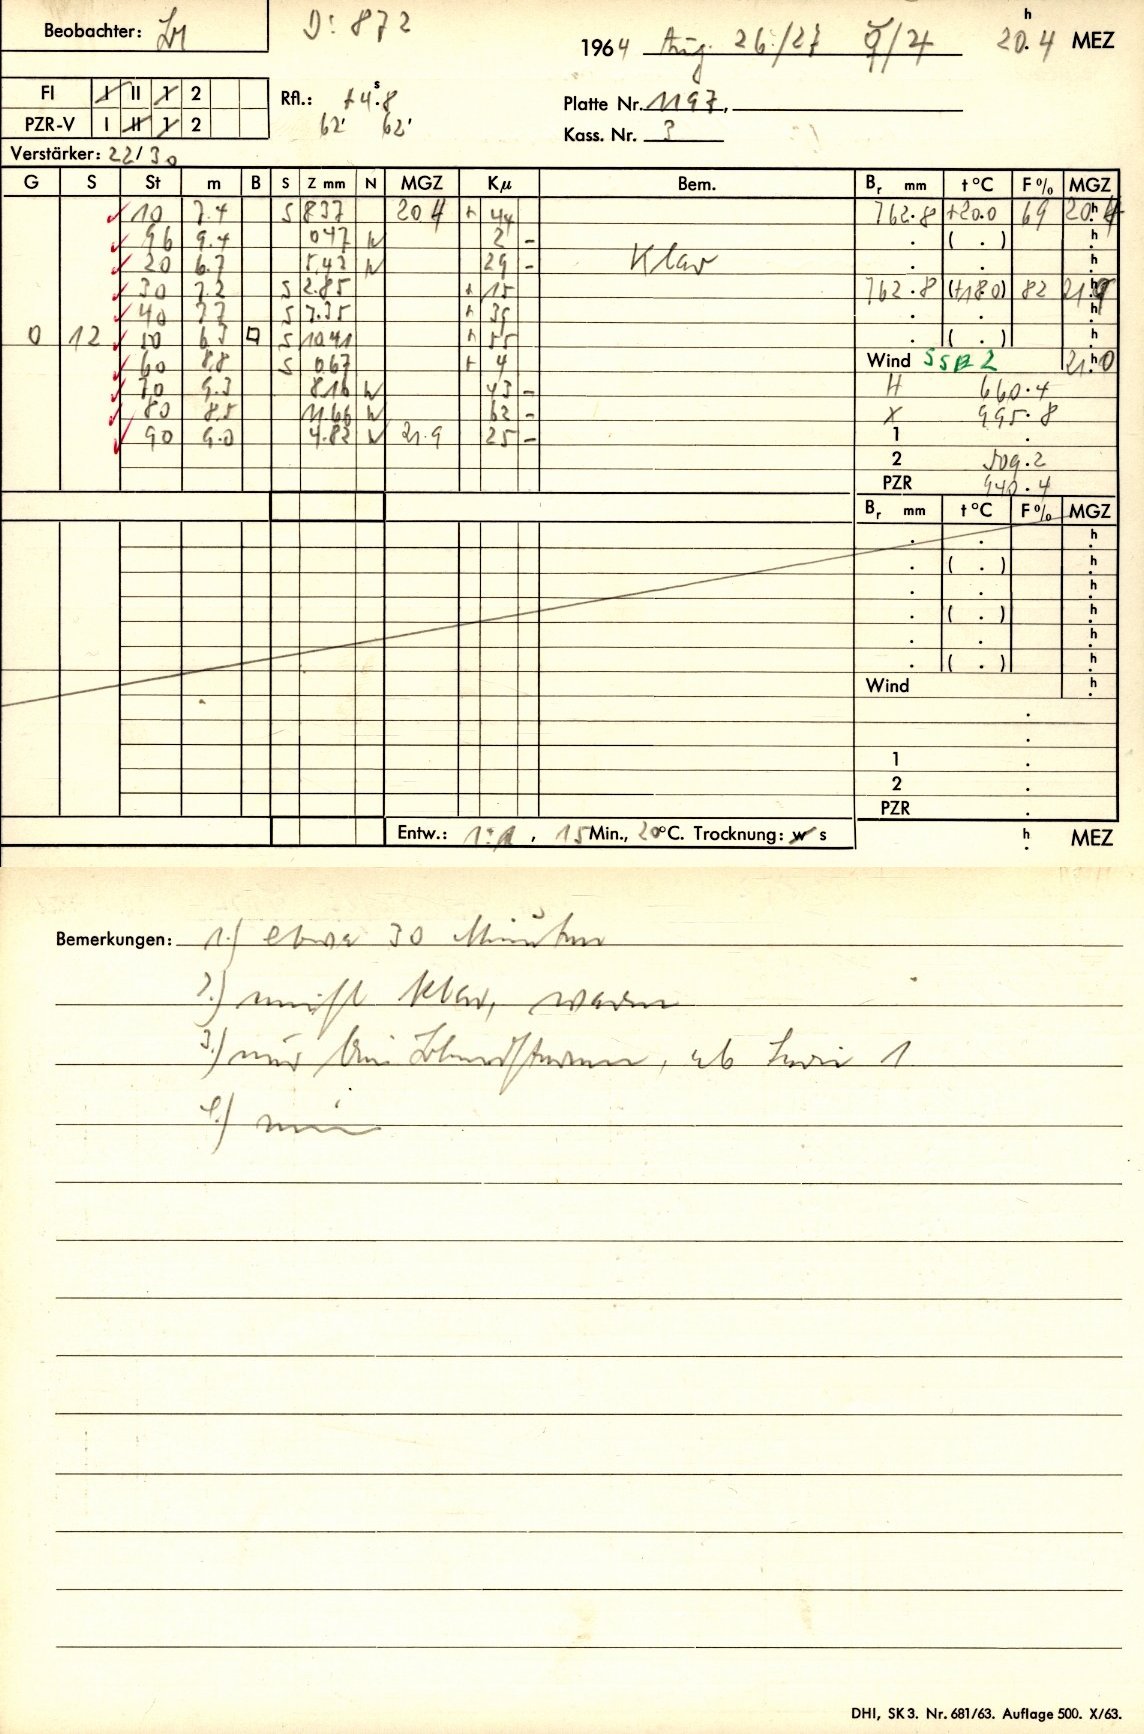 Beobachter:
D: 872
1964 Aug. 26./27 ☿/♃ 20.4 h MEZ
FI I II 1 2
PZR-V I II 1 2
Rfl.: +4.8 s
62' 62'
Platte Nr. 1197,
Kass. Nr. 3
Verstärker: 22/30
G S St m B S Z mm N MGZ Kμ Bem. Br mm t °C F % MGZ
10 7.4 S 8.37 20.4 + 44 762.8 +20.0 69 20.h4
96 9.4 0.47 N 2 - . ( . ) h
20 6.7 5.42 N 29 - Klar . . h
30 7.2 S 2.85 + 15 762.8 (+18.0) 82 21.h9
40 7.7 S 7.35 + 39 . . h
0 12 50 6.3 □ S 10.41 + 55 . ( . ) h
60 8.8 S 0.67 + 4 Wind SSE 2 21.h0
70 9.3 8.16 N 43 - H 660.4
80 8.5 11.66 N 62 - X 995.8
90 9.0 4.82 N 21.9 25 - 1 .
2 509.2
PZR 940.4
Br mm t °C F % MGZ
. . h
. ( . ) h
. . h
. ( . ) h
. . h
. ( . ) h
Wind h
.
.
1 .
2 .
PZR .
Entw.: 1:1, 15 Min., 20°C. Trocknung: w s h MEZ
Bemerkungen: 1.) etwa 30 Minuten
2.) meist klar, warm
3.) nur 1
4.)
DHI, SK 3. Nr. 681/63. Auflage 500. X/63.